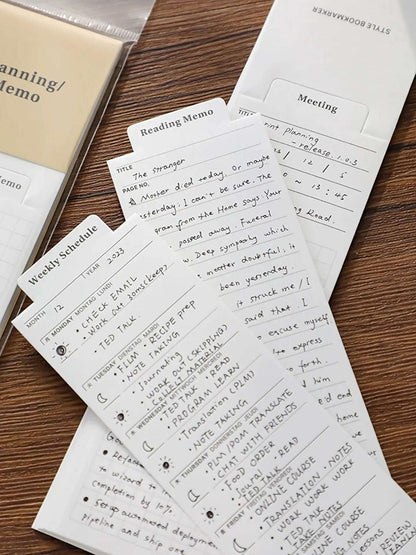 STYLE BOOKMARKER
anning/
Memo
Memo
Meeting
planning
release. 1.0.3
/ 12 / 5
0 ~ 13:45
Road.
Reading Memo
TITLE The stranger
PAGE NO.
Mother died today. Or maybe
yesterday. I can't be sure. The
gram from the Home says: Your
passed away. Funeral
w. Deep sympathy which
matter doubtful; it
been yesterday.
it struck me / I
said that I
excuse myself
to express
forth
him
he'd end
home
Weekly Schedule
MONTH 12 YEAR 2023
MONDAY MONTAG LUNDI
CHECK EMAIL
Work out 30ms(keep)
TED TALK
TUESDAY DIENSTAG MARDI
FILM · RECIPE prep
NOTE TAKING
Journaling
WORK OUT (SKIPPING)
COLLECT MATERIAL
WEDNESDAY MITTWOCH MERCREDI
TED TALK · READ
PROGRAM · LEARN
Translation (PLM)
NOTE TAKING
THURSDAY DONNERSTAG JEUDI
PLM/DOM TRANSLATE
CHAT WITH FRIENDS
FOOD ORDER
Journal READ
TED TALK
FRIDAY FREITAG VENDREDI
ONLINE COURSE
TRANSLATION · NOTES
WORK WORK WORK
TED TALK
NOTE TAKING
SAMSTAG SAMEDI
ONLINE COURSE
NOTES
REVIEW
PLANNIN
to wizard to
completion by 10%
Setup automated deployment
Pipeline and ship one